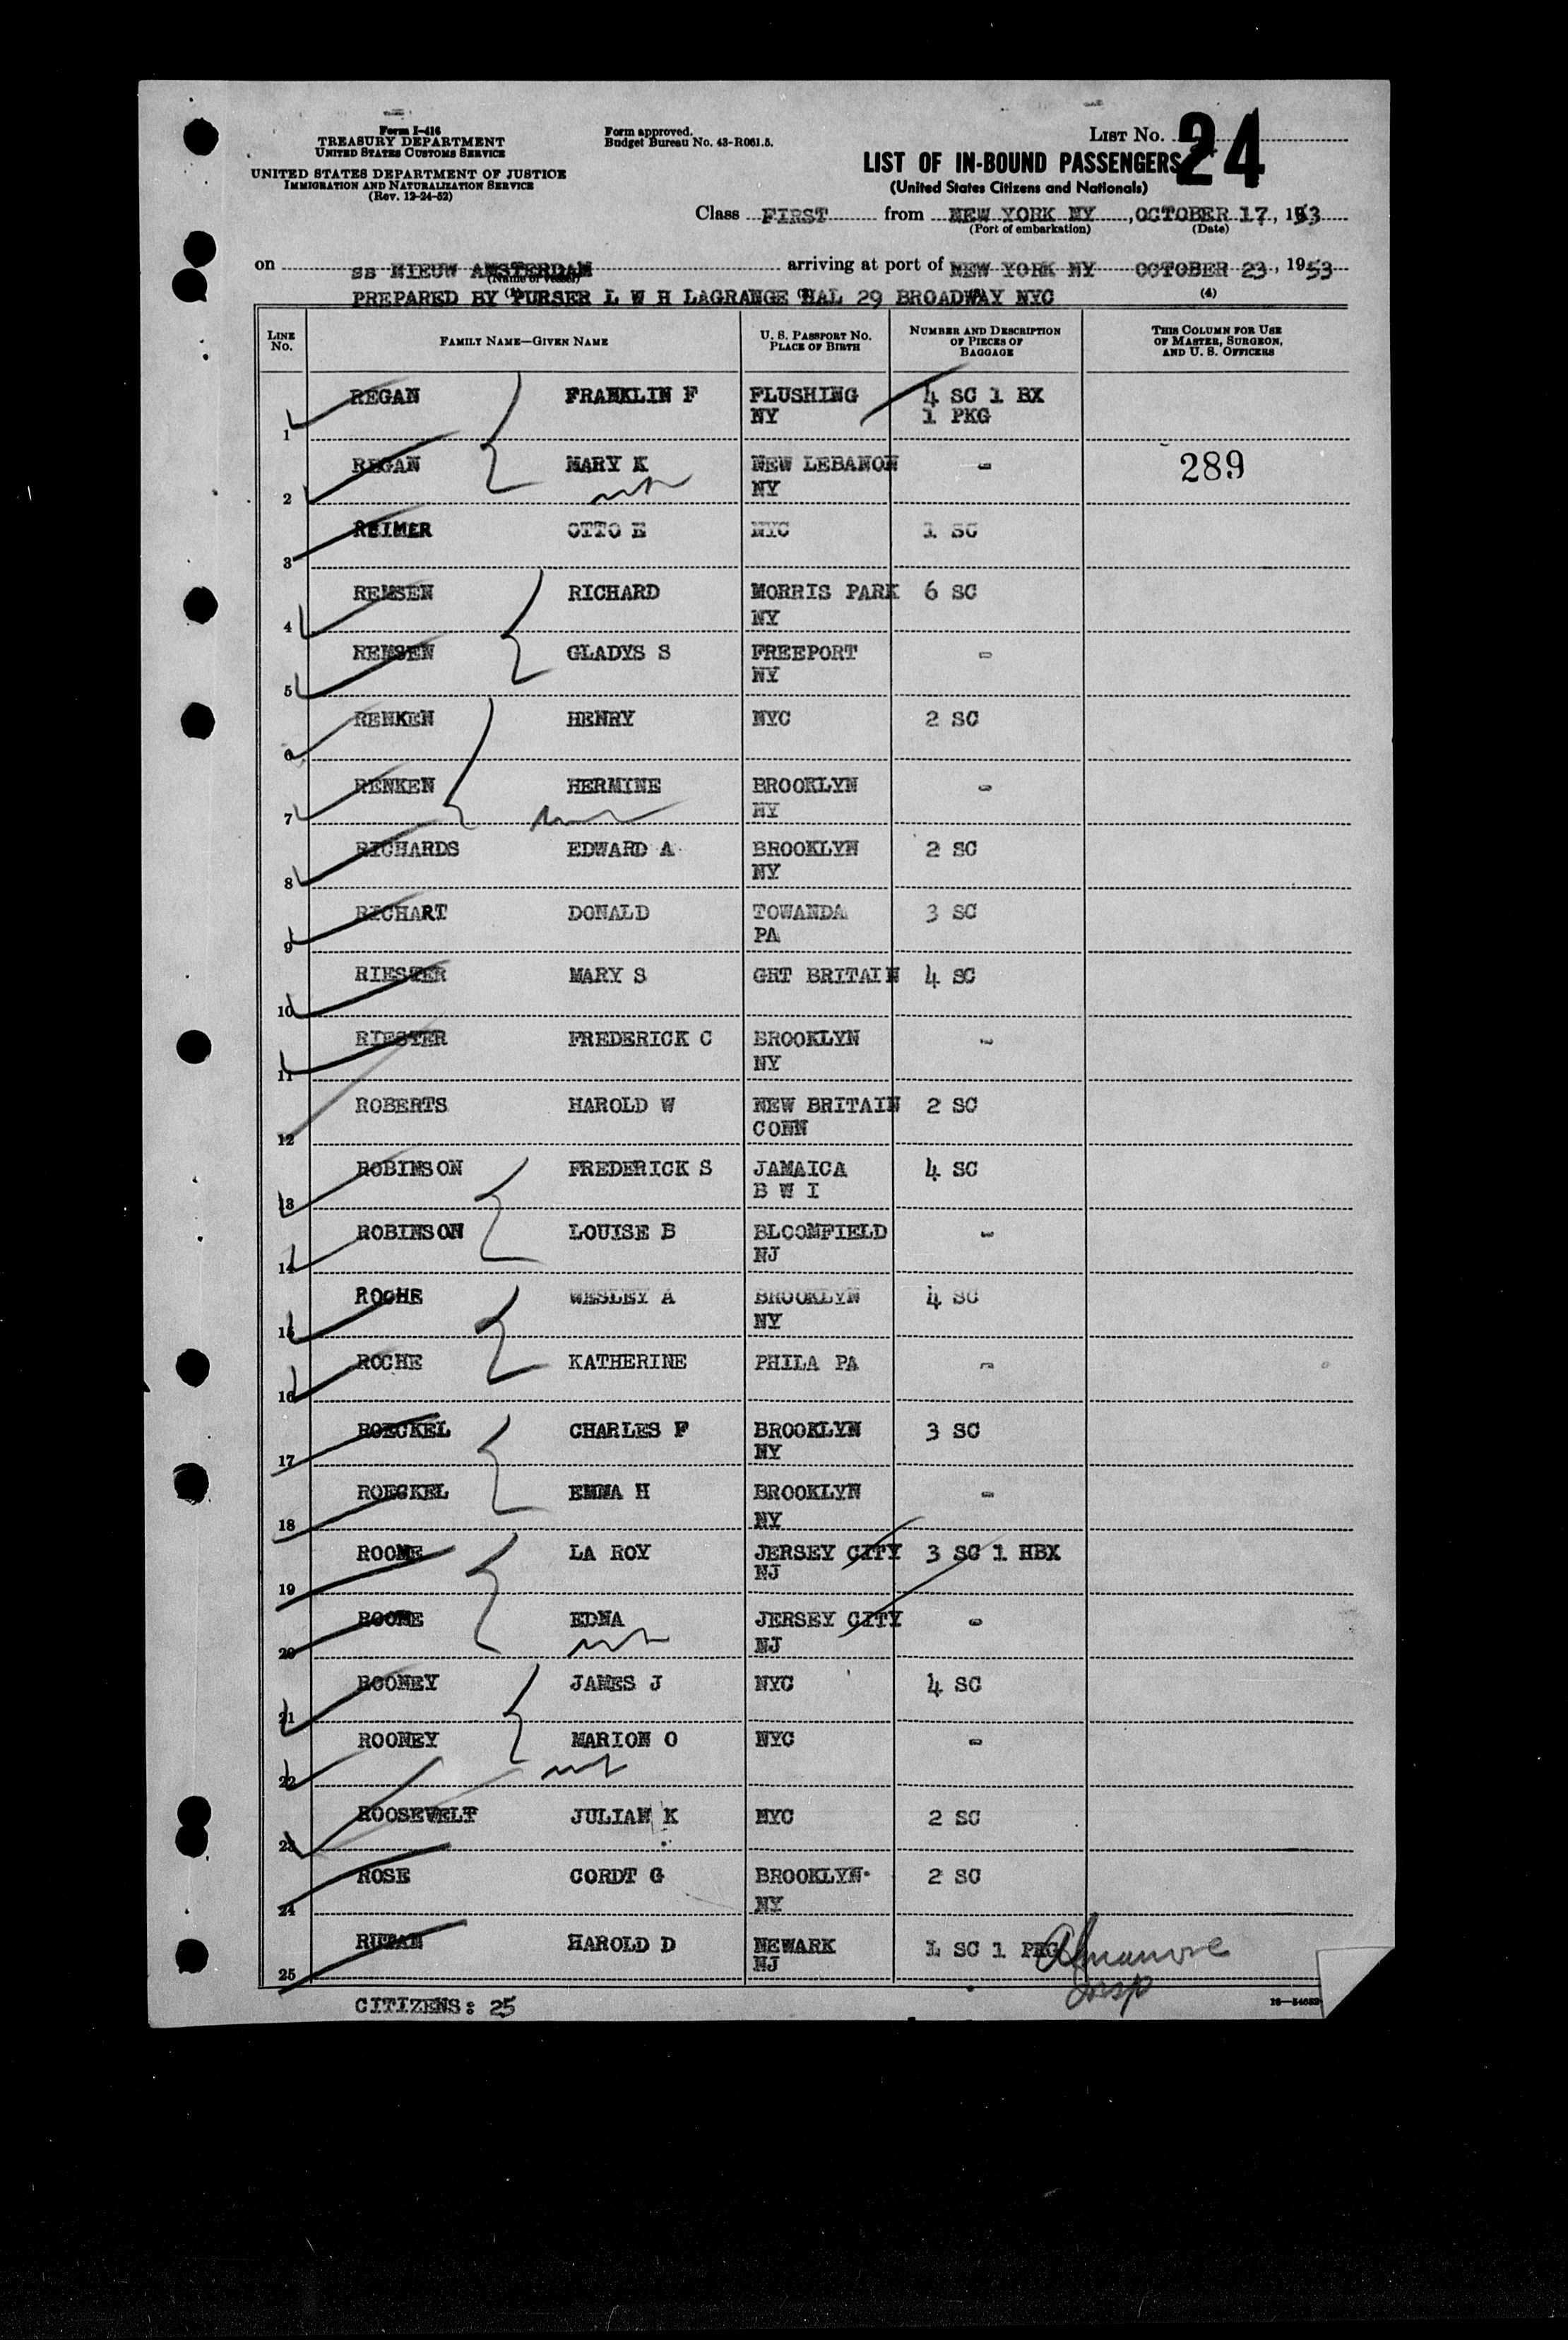 Form I-416
TREASURY DEPARTMENT
UNITED STATES CUSTOMS SERVICE
UNITED STATES DEPARTMENT OF JUSTICE
IMMIGRATION AND NATURALIZATION SERVICE
(Rev. 12-24-52)
Form approved.
Budget Bureau No. 43-R061.5.
LIST NO. 24
LIST OF IN-BOUND PASSENGERS
(United States Citizens and Nationals)
Class FIRST from NEW YORK NY, OCTOBER 17, 1953
(Port of embarkation) (Date)
on ss NIEUW AMSTERDAM arriving at port of NEW YORK NY OCTOBER 23, 1953
(Name of vessel)
PREPARED BY PURSER L W H LAGRANGE HAL 29 BROADWAY NYC (4)
LINE NO. FAMILY NAME—GIVEN NAME U. S. PASSPORT NO. PLACE OF BIRTH NUMBER AND DESCRIPTION OF PIECES OF BAGGAGE THIS COLUMN FOR USE OF MASTER, SURGEON, AND U. S. OFFICERS
1 REGAN FRANKLIN F FLUSHING NY 4 SC 1 BX 1 PKG
2 REGAN MARY K NEW LEBANON NY - 289
3 REIMER OTTO E NYC 1 SC
4 REMSEN RICHARD MORRIS PARK NY 6 SC
5 REMSEN GLADYS S FREEPORT NY -
6 RENKEN HENRY NYC 2 SC
7 RENKEN HERMINE BROOKLYN NY -
8 RICHARDS EDWARD A BROOKLYN NY 2 SC
9 RICHART DONALD TOWANDA PA 3 SC
10 RIESTER MARY S GRT BRITAIN 4 SC
11 RIESTER FREDERICK C BROOKLYN NY -
12 ROBERTS HAROLD W NEW BRITAIN CONN 2 SC
13 ROBINSON FREDERICK S JAMAICA B W I 4 SC
14 ROBINSON LOUISE B BLOOMFIELD NJ -
15 ROCHE WESLEY A BROOKLYN NY 4 SC
16 ROCHE KATHERINE PHILA PA -
17 ROECKEL CHARLES F BROOKLYN NY 3 SC
18 ROECKEL EMMA H BROOKLYN NY -
19 ROOME LA ROY JERSEY CITY NJ 3 SC 1 HBX
20 ROOME EDNA JERSEY CITY NJ -
21 ROONEY JAMES J NYC 4 SC
22 ROONEY MARION O NYC -
23 ROOSEVELT JULIAN K NYC 2 SC
24 ROSE CORDT G BROOKLYN NY 2 SC
25 RUTAN HAROLD D NEWARK NJ 1 SC 1 PKG
CITIZENS: 25